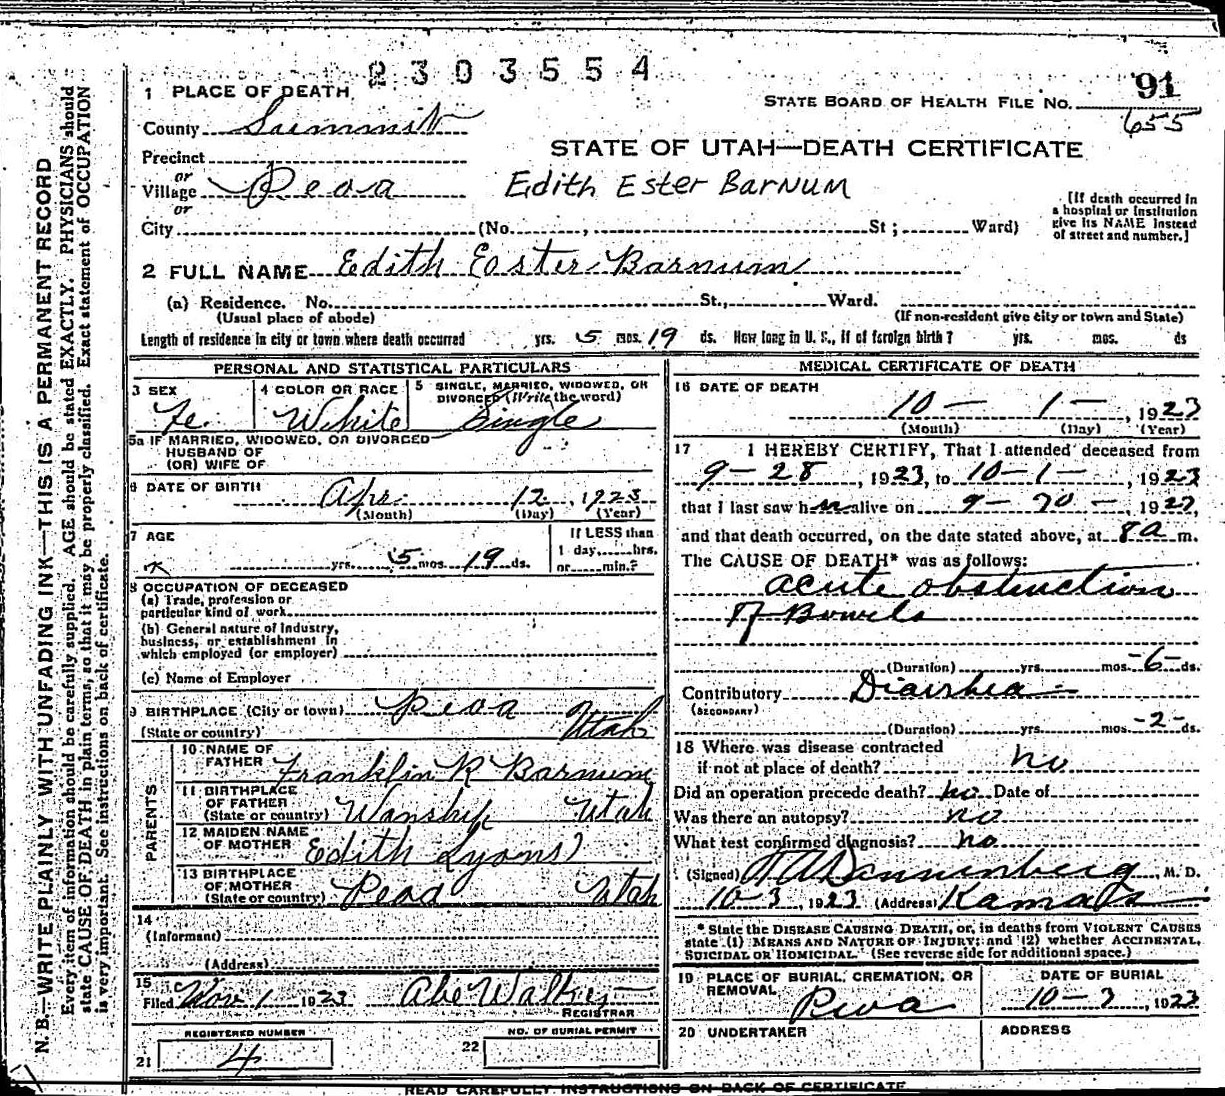 2303554
91
STATE BOARD OF HEALTH FILE NO.
655
1 PLACE OF DEATH
County Summit
STATE OF UTAH—DEATH CERTIFICATE
Precinct
or
Village Peoa
Edith Ester Barnum
or
City (No. , St ; Ward)
[If death occurred in
a hospital or institution
give its NAME instead
of street and number.]
2 FULL NAME Edith Ester Barnum
(a) Residence. No. St., Ward.
(Usual place of abode)
(If non-resident give city or town and State)
Length of residence in city or town where death occurred yrs. 5 mos. 19 ds. How long in U. S., if of foreign birth? yrs. mos. ds
PERSONAL AND STATISTICAL PARTICULARS
3 SEX
Fe.
4 COLOR OR RACE
White
5 SINGLE, MARRIED, WIDOWED, OR
DIVORCED (Write the word)
Single
5a IF MARRIED, WIDOWED, OR DIVORCED
HUSBAND OF
(OR) WIFE OF
6 DATE OF BIRTH
Apr 12, 1923
(Month) (Day) (Year)
7 AGE
yrs. 5 mos. 19 ds.
If LESS than
1 day, hrs.
or min.?
8 OCCUPATION OF DECEASED
(a) Trade, profession or
particular kind of work
(b) General nature of industry,
business, or establishment in
which employed (or employer)
(c) Name of Employer
9 BIRTHPLACE (City or town) Peoa
(State or country) Utah
PARENTS
10 NAME OF
FATHER Franklin R Barnum
11 BIRTHPLACE
OF FATHER
(State or country) Wanship Utah
12 MAIDEN NAME
OF MOTHER Edith Lyons
13 BIRTHPLACE
OF MOTHER
(State or country) Peoa Utah
14
(Informant)
(Address)
15
Filed Nov 1 1923 Abe Walker
REGISTRAR
REGISTERED NUMBER
21 4
NO. OF BURIAL PERMIT
22
MEDICAL CERTIFICATE OF DEATH
16 DATE OF DEATH
10 - 1 - , 1923
(Month) (Day) (Year)
17 I HEREBY CERTIFY, That I attended deceased from
9-28, 1923, to 10-1-, 1923
that I last saw her alive on 9-30-, 1923,
and that death occurred, on the date stated above, at 8a m.
The CAUSE OF DEATH* was as follows:
acute obstruction
of Bowels
(Duration) yrs. mos. -6- ds.
Contributory Diarrhea
(SECONDARY)
(Duration) yrs. mos. -2- ds.
18 Where was disease contracted
if not at place of death? no
Did an operation precede death? no Date of
Was there an autopsy? no
What test confirmed diagnosis? no
(Signed) Dannenberg, M. D.
10-3, 1923 (Address) Kamas
* State the DISEASE CAUSING DEATH, or, in deaths from VIOLENT CAUSES
state (1) MEANS AND NATURE OF INJURY; and (2) whether ACCIDENTAL,
SUICIDAL OR HOMICIDAL. (See reverse side for additional space.)
19 PLACE OF BURIAL, CREMATION, OR
REMOVAL
Peoa
DATE OF BURIAL
10-3, 1923
20 UNDERTAKER
ADDRESS
READ CAREFULLY INSTRUCTIONS ON BACK OF CERTIFICATE
N. B.—WRITE PLAINLY WITH UNFADING INK—THIS IS A PERMANENT RECORD
Every item of information should be carefully supplied. AGE should be stated EXACTLY. PHYSICIANS should
state CAUSE OF DEATH in plain terms, so that it may be properly classified. Exact statement of OCCUPATION
is very important. See instructions on back of certificate.